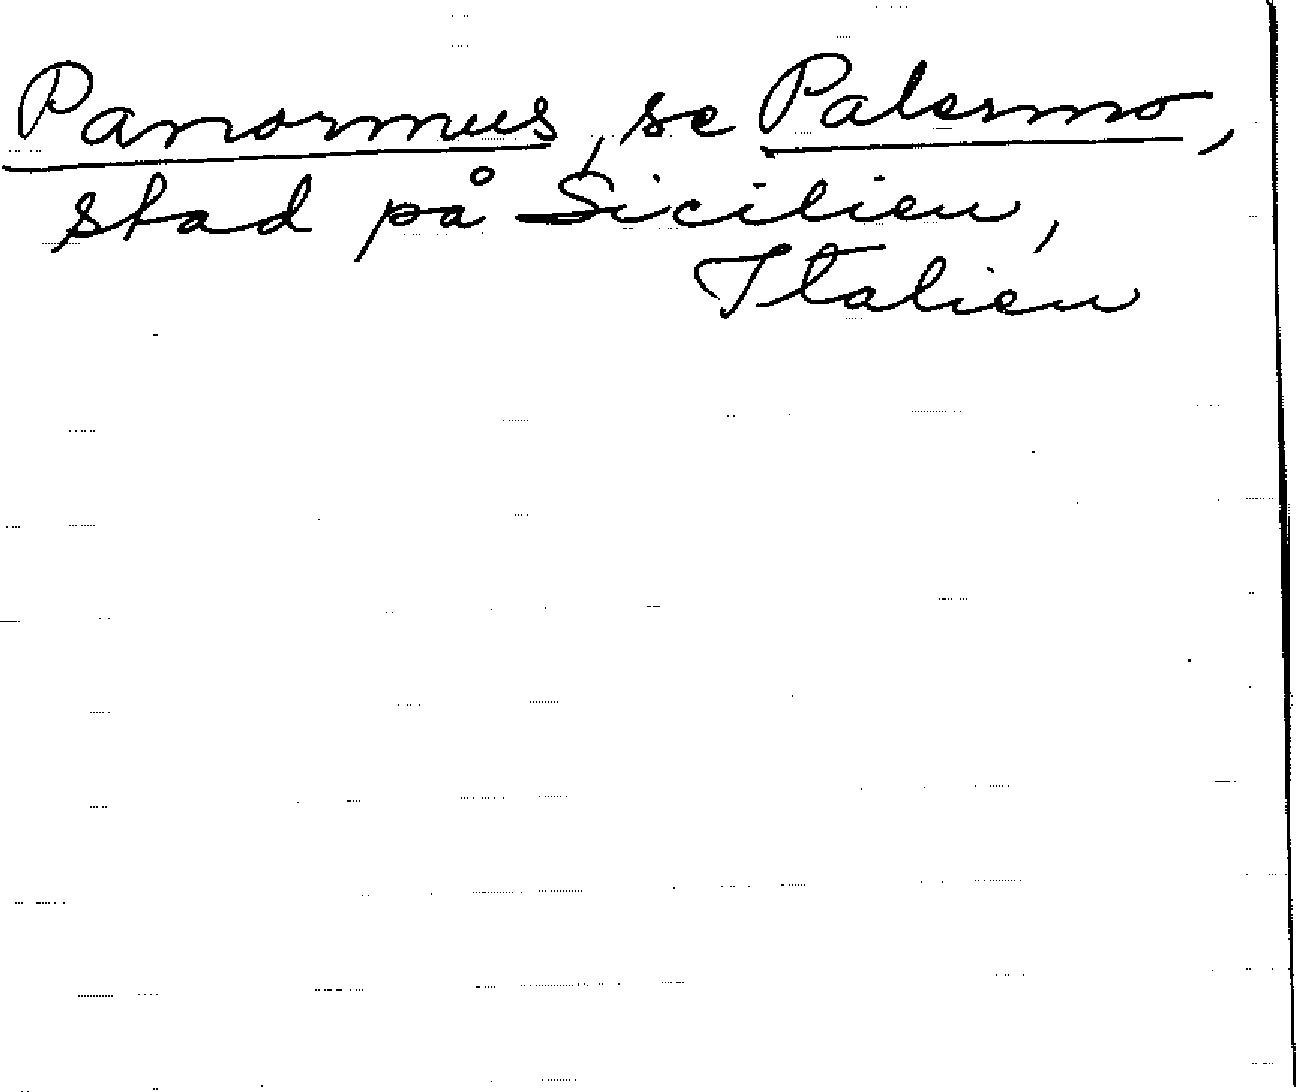 Panormus, se Palermo,
stad på Sicilien,
Italien